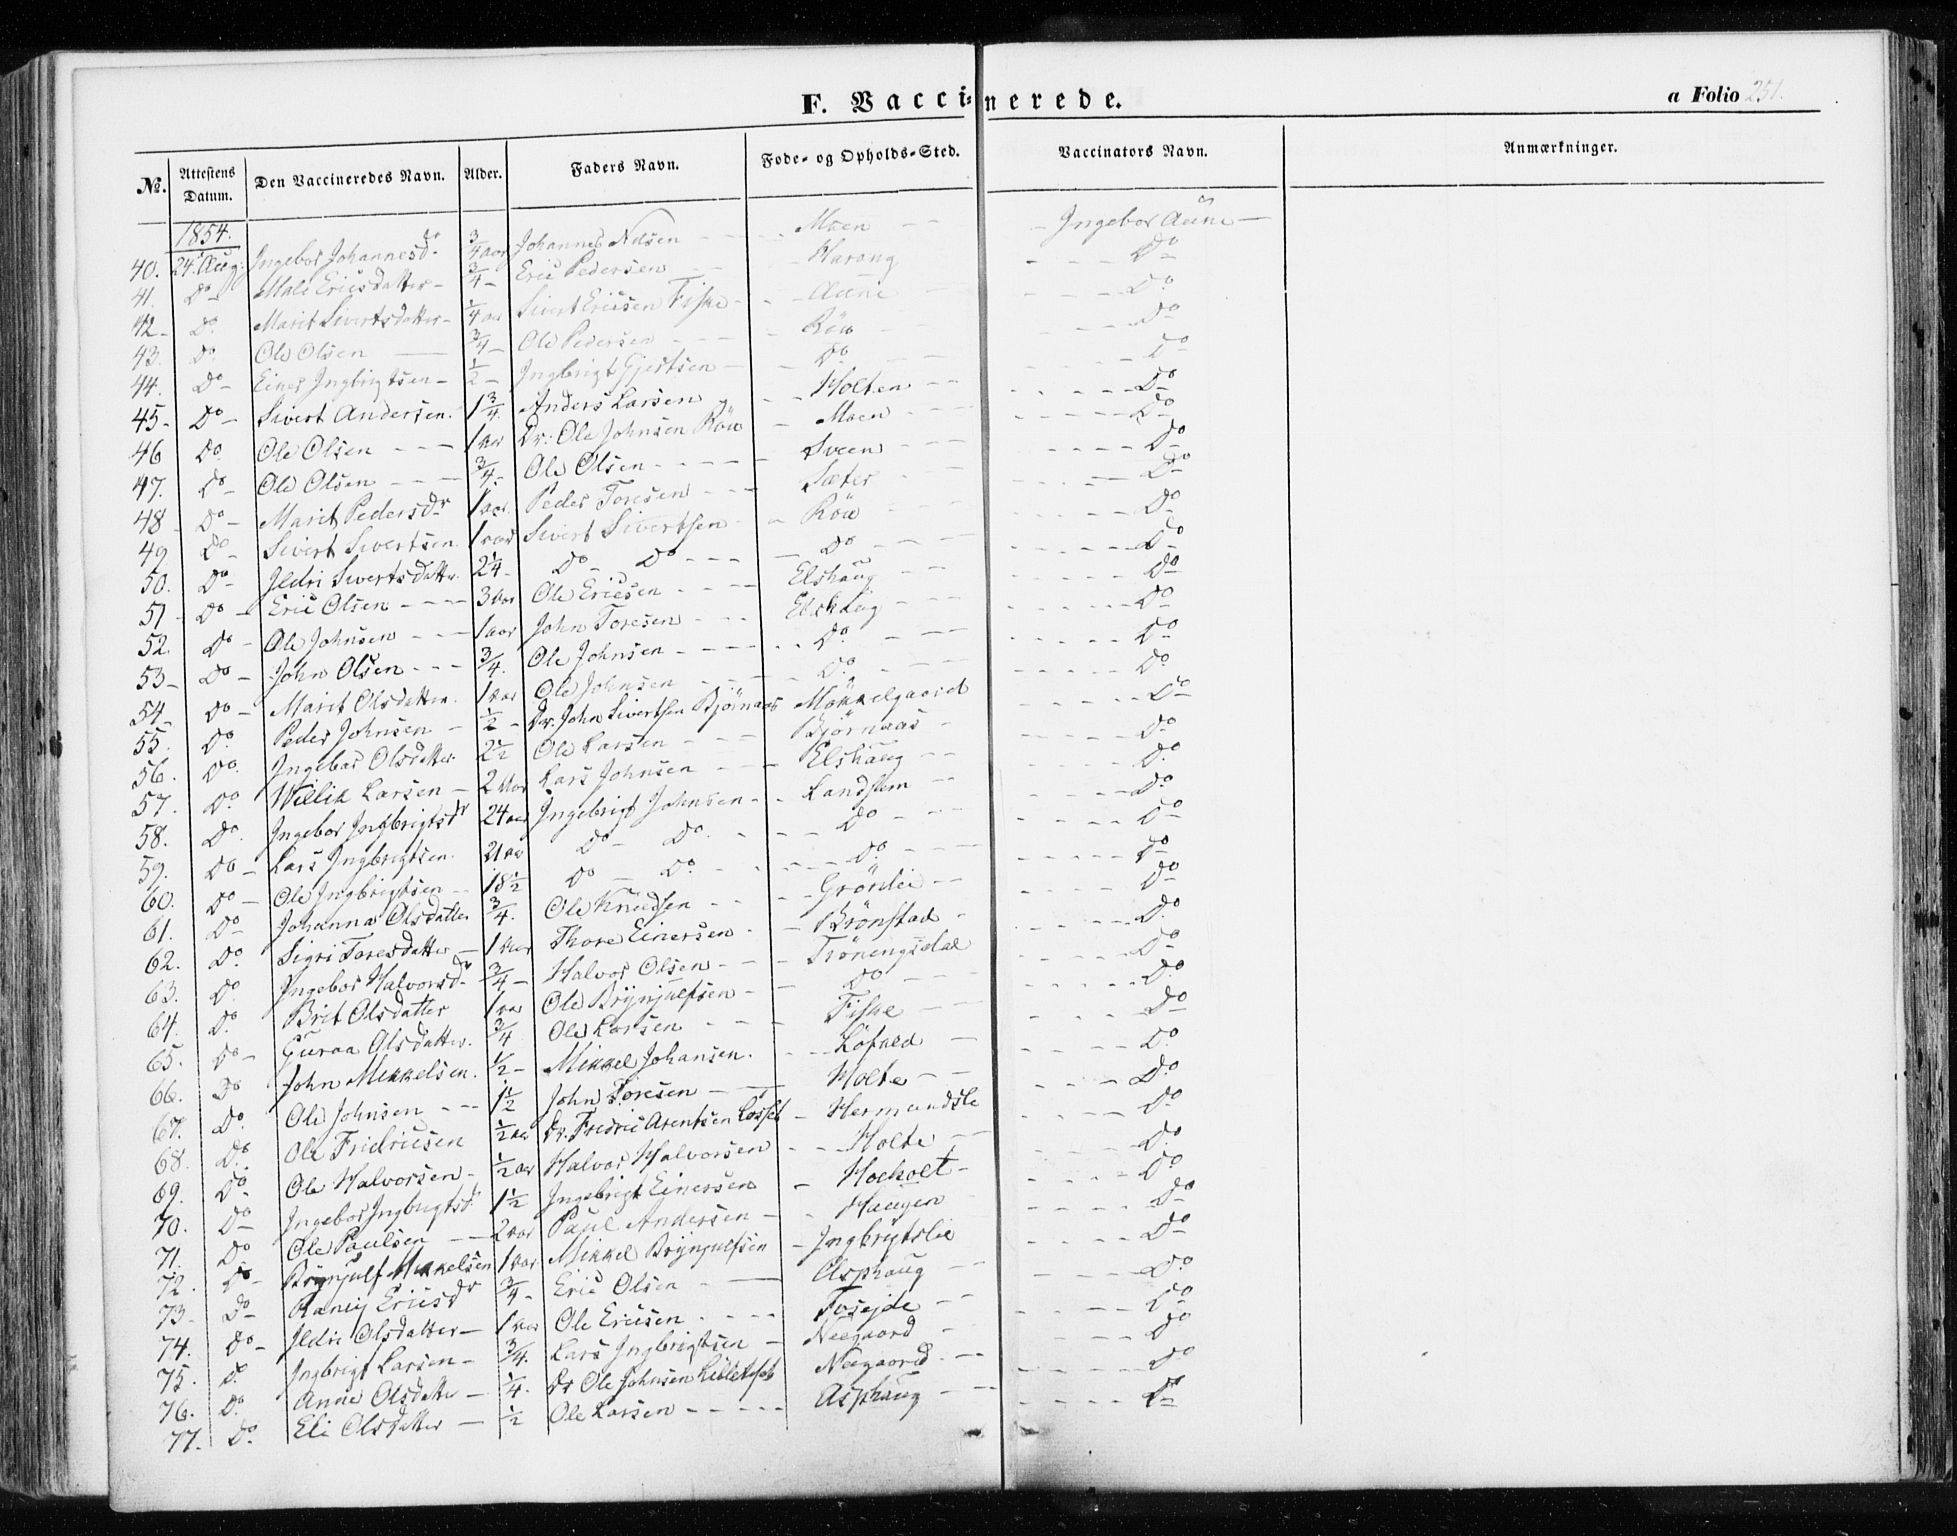 F. Vaccinerede.
a Folio 251.
№. Attestens Datum. Den Vaccineredes Navn. Alder. Faders Navn. Føde- og Opholds-Sted. Vaccinators Navn. Anmærkninger.
1854.
40. 24. Aug: Ingebor Johannesdr 3/4 aar Johannes Nilsen Moen Ingebor Aune
41. Do Mali Ericsdatter 3/4 Eric Pedersen Harang Do
42 Do. Marit Sivertsdatter 1/4 aar Sivert Ericsen Fiske Aune Do
43. Do. Ole Olsen 3/4 Ole Pedersen Röw Do
44. Do Einer Ingbrigtsen 1/2 Ingbrigt Gjertsen Do Do
45 Do Sivert Andersen. 1 3/4 Anders Larsen Holten Do
46 Do. Ole Olsen 1 aar Dr: Ole Johnsen Röw Moen Do
47. Do Ole Olsen 3/4 Ole Olsen Sveen Do
48 Do Marit Pedersdr 1 aar Peder Toresen Sæter Do
49 Do Sivert Sivertsen 1 aar Sivert Sivertsen Röw Do
50. Do Ildri Sivertsdatter 2 1/4 Do Do Do Do
51 Do Eric Olsen 3 aar Ole Ericsen Elshaug Do
52. Do Ole Johnsen 1 aar John Toresen Elshaug Do
53 Do John Olsen 3/4. Ole Johnsen Do. Do
54 Do Marit Olsdatter 1 aar Ole Johnsen Do. Do
55. Do. Peder Johnsen 1/2 Dr. John Sivertsen Björnaas Mökkelgaard Do
56. Do. Ingebor Olsdatter 2 1/2 Ole Larsen Björnaas Do
57. Do. Willik Larsen 2 aar Lars Johnsen Elshaug Do.
58. Do. Ingebor Ingbrigtsdr 24 aar Ingebrigt Johnsen Landsem Do
59. Do Lars Ingbrigtsen 21 aar Do Do. Do Do
60. Do Ole Ingbrigtsen 18 1/2 Do Do. Do. Do
61. Do Johanna Olsdatter 3/4. Ole Knudsen Grönlie Do
62. Do. Sigri Toresdatter 1 aar Thore Einersen Brönstad Do.
63. Do. Ingebor Halvorsdr 3/4 Halvor Olsen Tröningsdal Do
64. Do. Brit Olsdatter 1 aar Ole Brynjulfsen Do Do
65. Do Guroa Olsdatter 3/4 Ole Larsen Fiske Do
66. Do John Mikkelsen. 1/2 Mikkel Johansen. Löfald Do
67. Do. Ole Johnsen 1 1/2 John Toresen Holte Do
68. Do. Ole Fridricsen 1/2 aar Dr. Fredric Arentsen Losset Hermundsle Do
69. Do. Ole Halvorsen 1/2 aar Halvor Halvorsen Holte Do
70. Do Ingebor Ingbrigtsdr 1 1/2 Ingebrigt Einersen Hocholt Do
71. Do Ole Paulsen 2 aar Paul Andersen Haugen Do
72. Do Brynjulf Mikkelsen 1 aar Mikkel Brynjulfsen Ingbrytslie Do
73 Do Raney Ericsdr 3/4 Eric Olsen Asphaug Do
74. Do Ildri Olsdatter 1 aar Ole Ericsen Do
75. Do. Ingbrigt Larsen 3/4. Lars Ingbrigtsen Neegaard Do
76. Do. Anne Olsdatter 1/4. Dr Ole Johnsen Neegaard Do
77. Do. Eli Olsdatter 1/2 Ole Larsen Asphaug Do